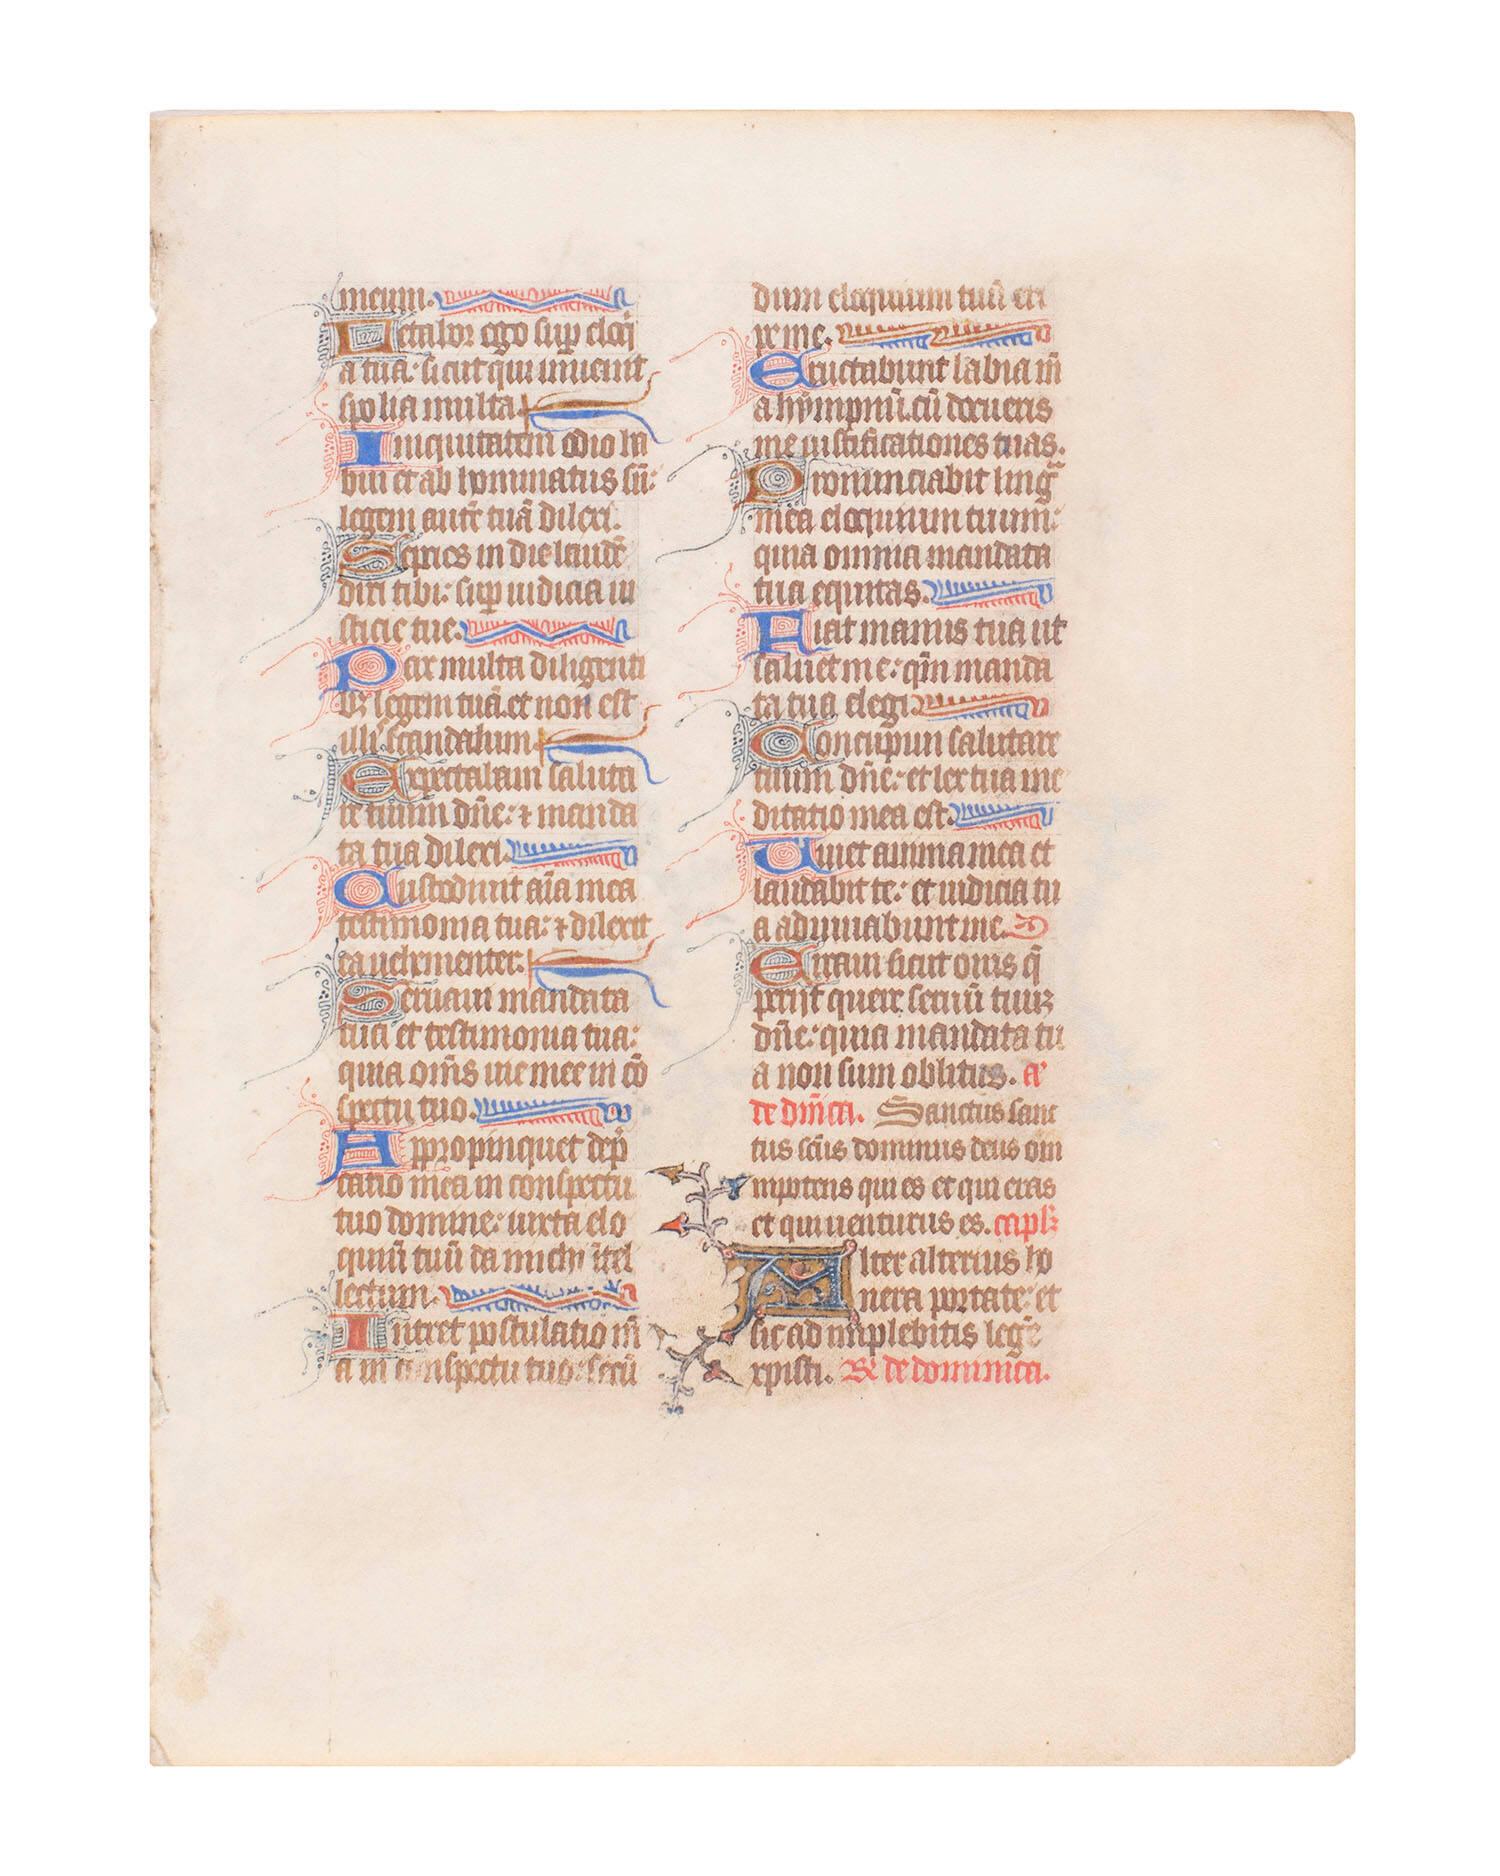 meum.
Letabor ego sup eloq̄
a tua: sicut qui inuenit
spolia multa.
Iniquitatem odio ha
bui et ab hominatus sū:
legem autē tuā dilexi.
Septies in die laudē
dixi tibi: sup iudicia iu
sticie tue.
Pax multa diligenti
bz legem tuā. et non est
illis scandalum.
Expectabam saluta
re tuum dn̄e: ⁊ manda
ta tua dilexi.
Custodiuit aīa mea
testimonia tua: ⁊ dilexit
ea uehementer.
Seruaui mandata
tua et testimonia tua:
quia om̄s uie mee in cō
spectu tuo.
Appropinquet dep̄
catio mea in conspectu
tuo domine: iuxta elo
quiū tuū da michi ītel
lectum.
Intret postulatio m̄
a in conspectu tuo: secū
dum eloquium tuū eri
pe me.
Eructabunt labia m̄
a hympnū. cū docueris
me iustificationes tuas.
Pronunciabit ling̃
mea eloquium tuum:
quia omnia mandata
tua equitas.
Fiat manus tua ut
saluet me: qm̄ manda
ta tua elegi.
Concupiui salutare
tuum dn̄e: et lex tua me
ditatio mea est.
Uiuet anima mea et
laudabit te: et iudicia tu
a adiuuabunt me.
Erraui sicut ouis q̄
perijt quere seruū tuuz
dn̄e: quia mandata tu
a non sum oblitus. a
te dn̄ica. Sanctus sanc
tus sc̄us dominus deus om
nipotens qui es et qui eras
et qui uenturus es. capl̄z
Alter alterius ho
nera portate: et
sic ad implebitis legē
xpisti. R̄ de dominica.